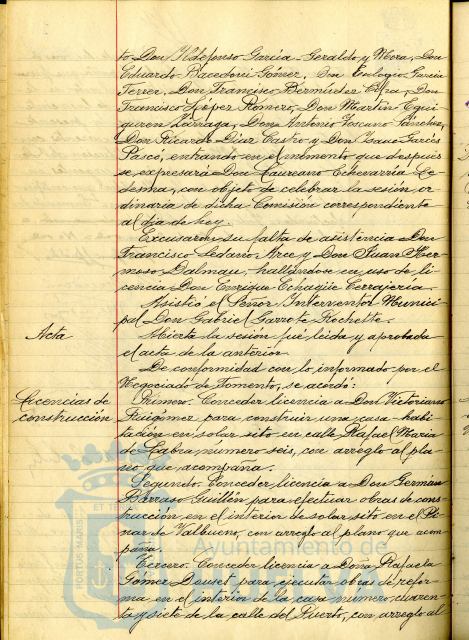 to Don Ildefonso García Geraldo y Mora, Don
Eduardo Bacedoni Gómez, Don Eulogio García
Ferrer, Don Francisco Bermúdez Cifra, Don
Francisco López Romero, Don Martín Egui
guren Zárraga, Don Antonio Toscano Sánchez,
Don Ricardo Díaz Castro y Don Isaac Garcés
Pasco, entrando en el momento que después
se expresará Don Laureano Echevarría Le
desma, con objeto de celebrar la sesión or
dinaria de dicha Comisión correspondiente
al día de hoy.
Excusaron su falta de asistencia Don
Francisco Ledano Arce y Don Juan Her
moso Dalmau, hallándose en uso de li
cencia Don Enrique Echagüe Cerrajería.
Asistió el Señor Interventor Munici
pal Don Gabriel Garrote Rochette.
Acta
Abierta la sesión fué leída y aprobada
el acta de la anterior.
De conformidad con lo informado por el
Negociado de Fomento, se acordó:
Licencias de
construcción
Primero. Conceder licencia a Don Victoriano
para construir una casa-habi
tación en solar sito en calle Rafael María
de Labra número seis, con arreglo al pla
no que acompaña.
Segundo. Conceder licencia a Don Germán
Barruso Guillén para efectuar obras de cons
trucción en el interior de solar sito en el Pi
nar de Valbueno, con arreglo al plano que acom
paña.
Tercero. Conceder licencia a Doña Rafaela
Gómez para ejecutar obras de refor
ma en el interior de la casa número cuaren
ta y siete de la calle del Puerto, con arreglo al
ET TERRA
PORTUS MARIS
Ayuntamiento de